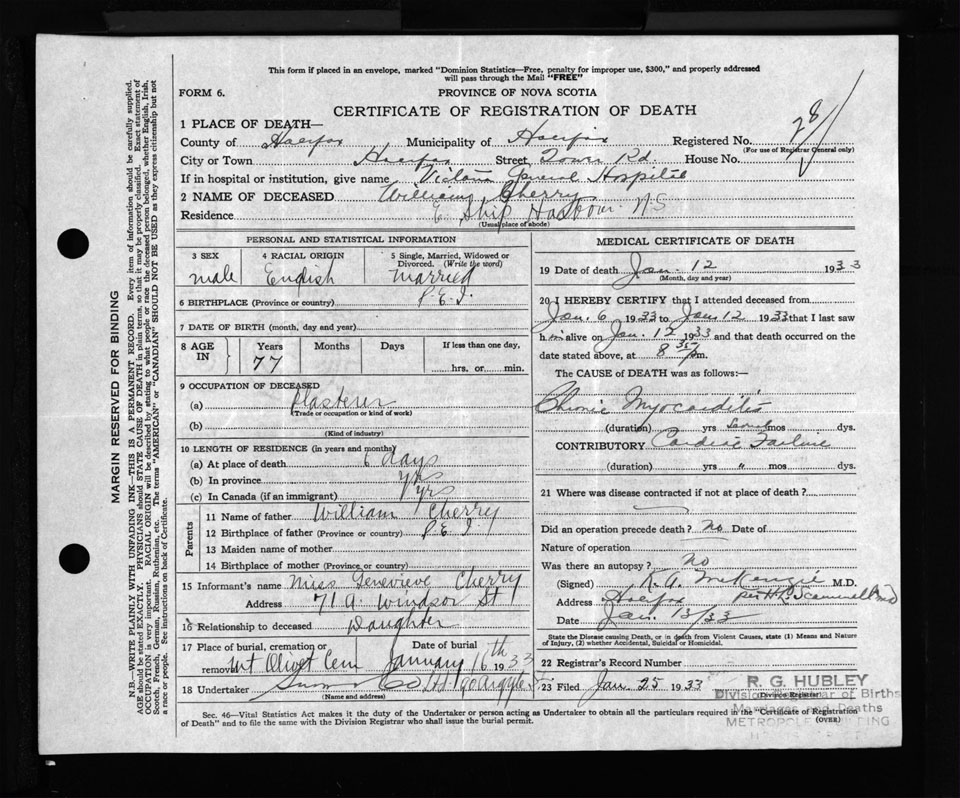 This form if placed in an envelope, marked "Dominion Statistics—Free, penalty for improper use, $300," and properly addressed
will pass through the Mail "FREE"
FORM 6.
PROVINCE OF NOVA SCOTIA
CERTIFICATE OF REGISTRATION OF DEATH
1 PLACE OF DEATH—
County of Halifax Municipality of Halifax Registered No.
(For use of Registrar General only)
City or Town Halifax Street Tower Rd. House No.
If in hospital or institution, give name Victoria General Hospital
2 NAME OF DECEASED William Cherry
Residence E. Ship Harbour N.S
(Usual place of abode)
PERSONAL AND STATISTICAL INFORMATION
3 SEX 4 RACIAL ORIGIN 5 Single, Married, Widowed or Divorced. (Write the word)
male English Married
6 BIRTHPLACE (Province or country) P.E.I.
7 DATE OF BIRTH (month, day and year)
8 AGE IN Years Months Days If less than one day,
77 hrs. or min.
9 OCCUPATION OF DECEASED
(a) Plasterer
(Trade or occupation or kind of work)
(b)
(Kind of industry)
10 LENGTH OF RESIDENCE (in years and months)
(a) At place of death 6 days
(b) In province yrs
(c) In Canada (if an immigrant) yrs
Parents
11 Name of father William Cherry
12 Birthplace of father (Province or country) P.E.I.
13 Maiden name of mother
14 Birthplace of mother (Province or country)
15 Informant's name Miss Genevieve Cherry
Address 71 A Windsor St
16 Relationship to deceased Daughter
17 Place of burial, cremation or removal Mt Olivet Cem Date of burial January 16th 1933
18 Undertaker Snow Co Ltd 90 Argyle St
(Name and address)
MEDICAL CERTIFICATE OF DEATH
19 Date of death Jan. 12 1933
(Month, day and year)
20 I HEREBY CERTIFY that I attended deceased from
Jan. 6 1933 to Jan. 12 1933 that I last saw
him alive on Jan. 12 1933 and that death occurred on
date stated above, at 8 35 pm.
The CAUSE of DEATH was as follows:—
Chronic Myocarditis
(duration) yrs mos dys.
CONTRIBUTORY Cardiac Failure
(duration) yrs " mos dys.
21 Where was disease contracted if not at place of death?
Did an operation precede death? No Date of
Nature of operation
Was there an autopsy? No
(Signed) K.A. McKenzie M.D.
Address Halifax per H.R. Scammell MD
Date Jan. 13/33
State the Disease causing Death, or in death from Violent Causes, state (1) Means and Nature
of Injury, (2) whether Accidental, Suicidal or Homicidal.
22 Registrar's Record Number
23 Filed Jan 25 1933
(Division Registrar)
R. G. HUBLEY
Division Registrar of Births
Marriages and Deaths
METROPOLE BUILDING
Sec. 46—Vital Statistics Act makes it the duty of the Undertaker or person acting as Undertaker to obtain all the particulars required in the "Certificate of Registration
of Death" and to file the same with the Division Registrar who shall issue the burial permit.
(OVER)
MARGIN RESERVED FOR BINDING
N.B.—WRITE PLAINLY WITH UNFADING INK—THIS IS A PERMANENT RECORD. Every item of information should be carefully supplied.
AGE should be stated EXACTLY. PHYSICIANS should STATE CAUSE OF DEATH in plain terms, so that it may be properly classified. Exact statement of
OCCUPATION is very important. RACIAL ORIGIN will be described by stating to what people or race the deceased person belonged, whether English, Irish,
Scotch, French, German, Russian, Ruthenian, etc. The terms "AMERICAN" or "CANADIAN" SHOULD NOT BE USED as they express citizenship but not
a race or people. See instructions on back of Certificate.